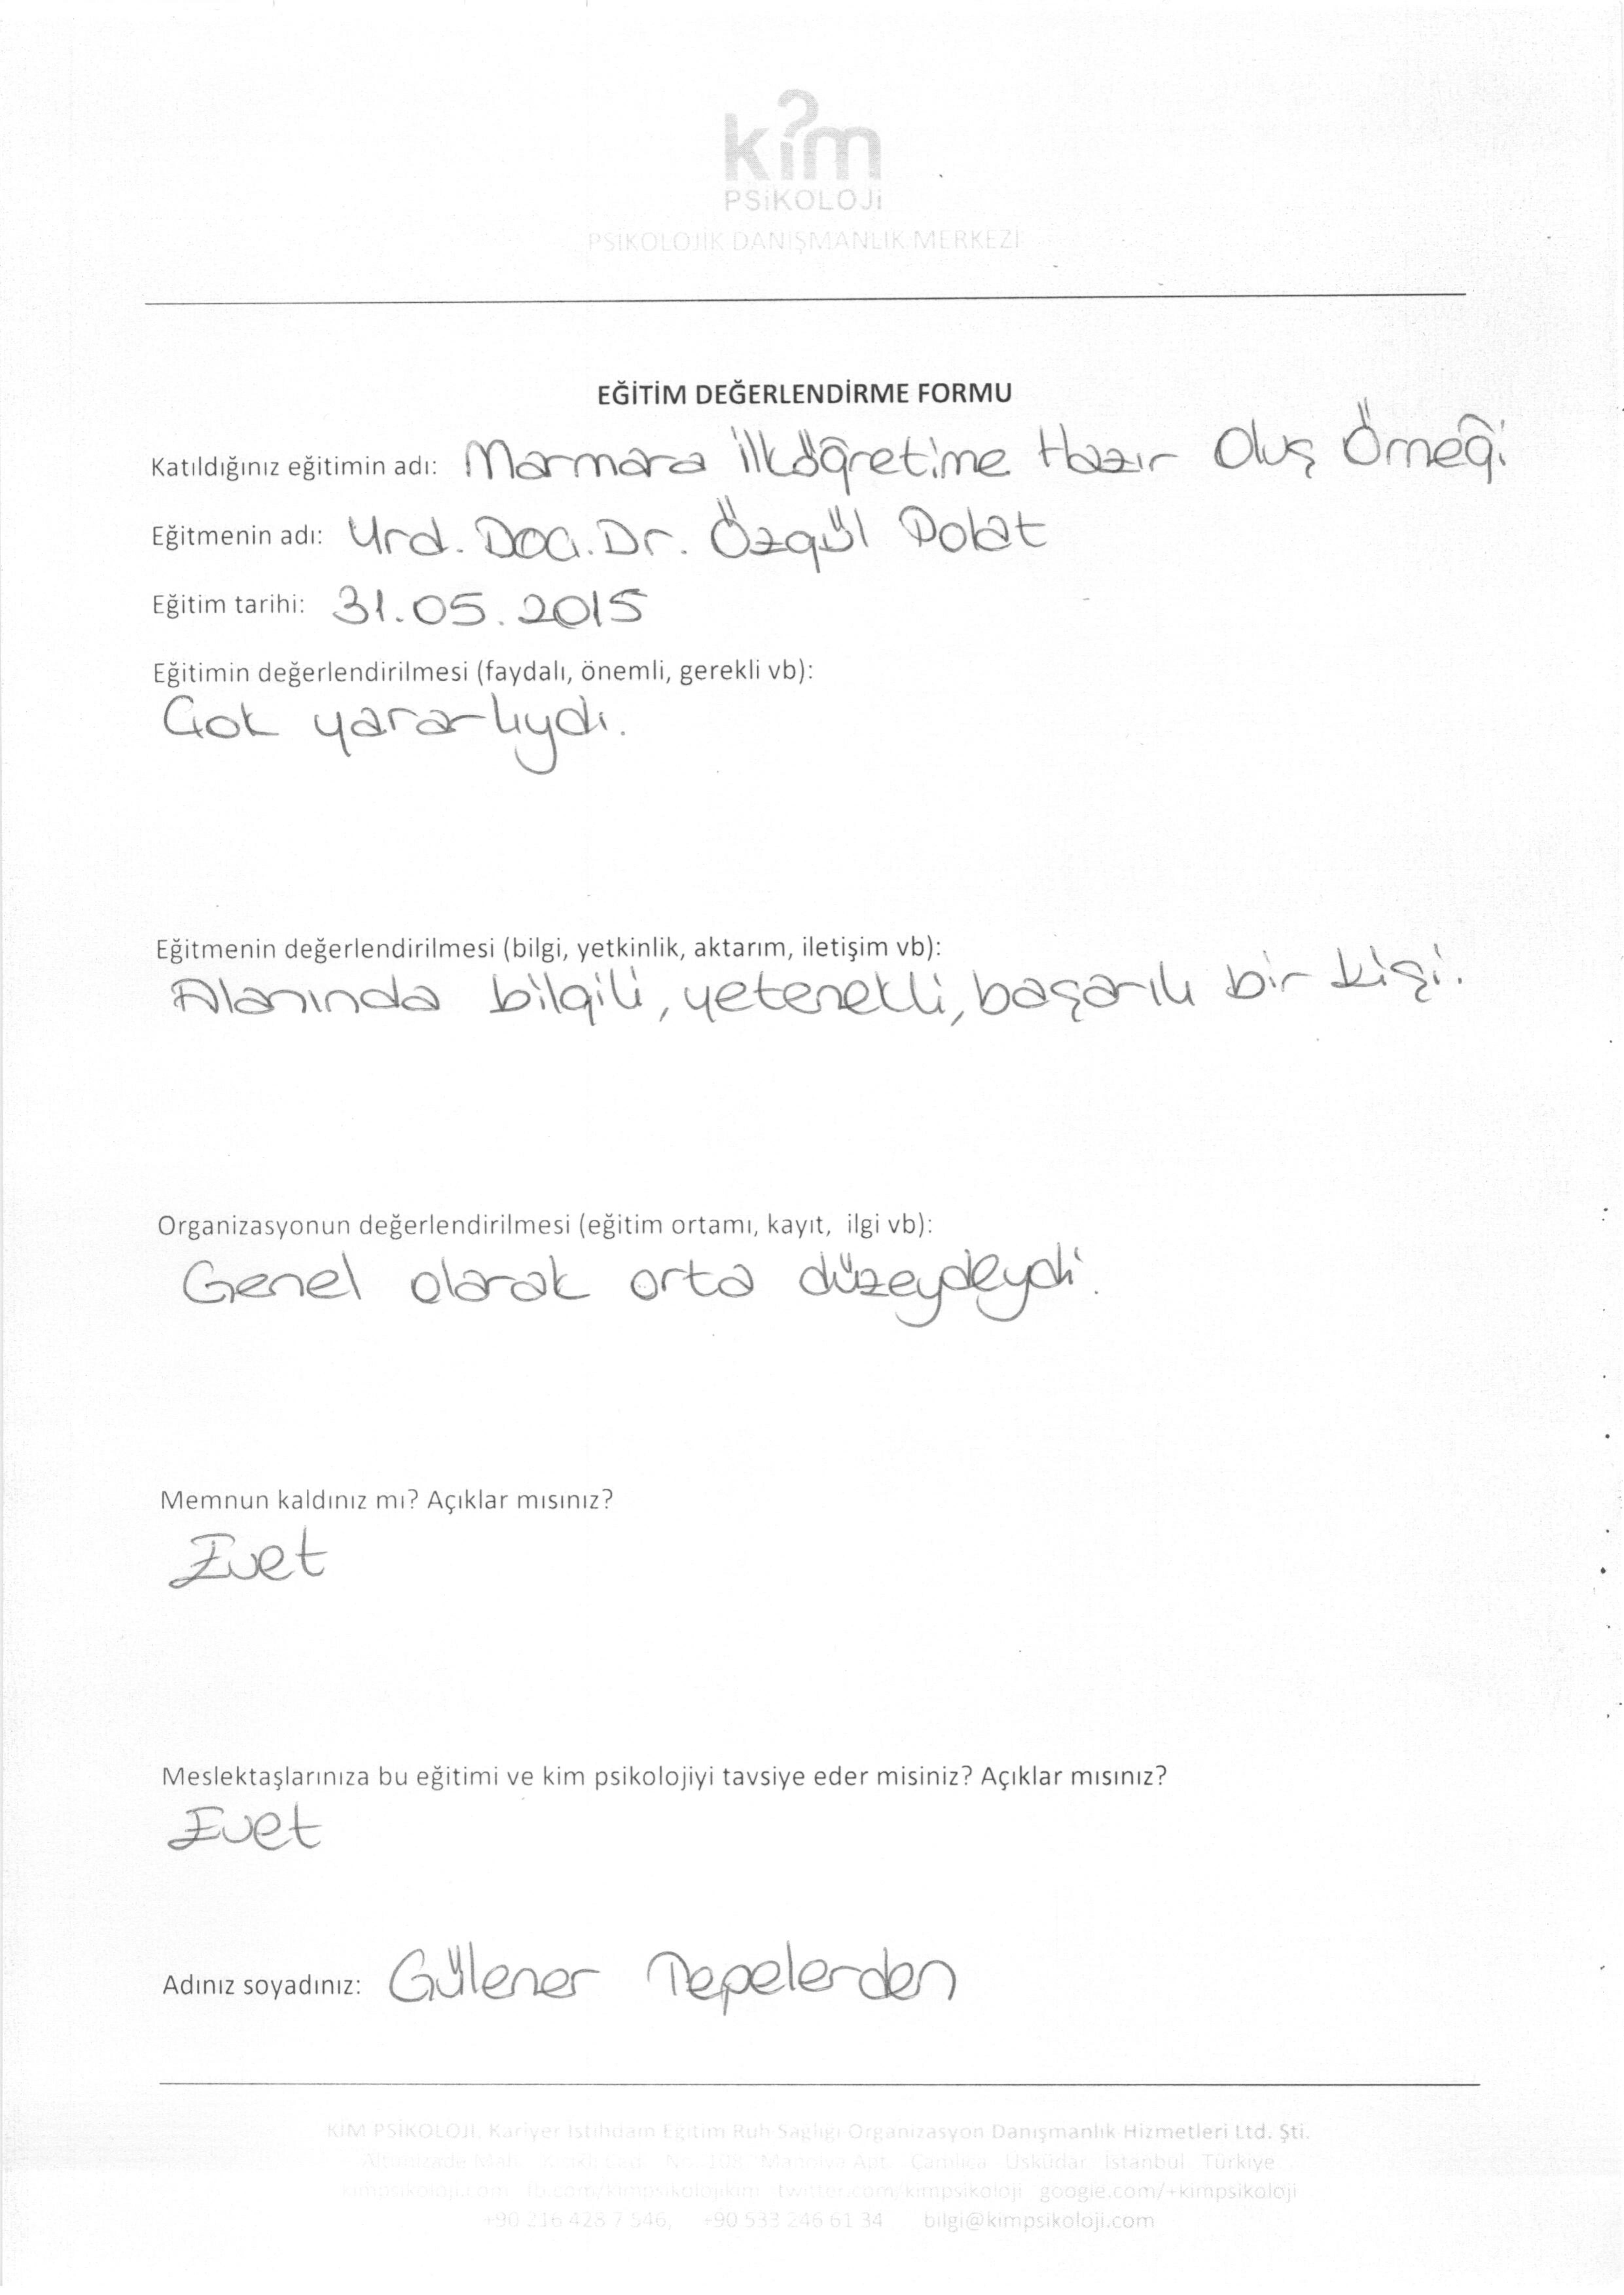 kim
PSiKOLOJi
PSİKOLOJİK DANIŞMANLIK MERKEZİ
EĞİTİM DEĞERLENDİRME FORMU
Katıldığınız eğitimin adı: Marmara İlköğretime Hazır Oluş Örneği
Eğitmenin adı: Yrd. Doç. Dr. Özgül Polat
Eğitim tarihi: 31.05.2015
Eğitimin değerlendirilmesi (faydalı, önemli, gerekli vb):
Çok yararlıydı.
Eğitmenin değerlendirilmesi (bilgi, yetkinlik, aktarım, iletişim vb):
Alanında bilgili, yetenekli, başarılı bir kişi.
Organizasyonun değerlendirilmesi (eğitim ortamı, kayıt, ilgi vb):
Genel olarak orta düzeydeydi.
Memnun kaldınız mı? Açıklar mısınız?
Evet
Meslektaşlarınıza bu eğitimi ve kim psikolojiyi tavsiye eder misiniz? Açıklar mısınız?
Evet
Adınız soyadınız: Gülener Tepelerden
KİM PSİKOLOJİ, Kariyer İstihdam Eğitim Ruh Sağlığı Organizasyon Danışmanlık Hizmetleri Ltd. Şti.
Altunizade Mah. No. 108 Manolya Apt. Çamlıca Üsküdar İstanbul Türkiye
kimpsikoloji.com fb.com/kimpsikolojikim twitter.com/kimpsikoloji google.com/+kimpsikoloji
+90 216 428 7 546, +90 533 246 61 34 bilgi@kimpsikoloji.com